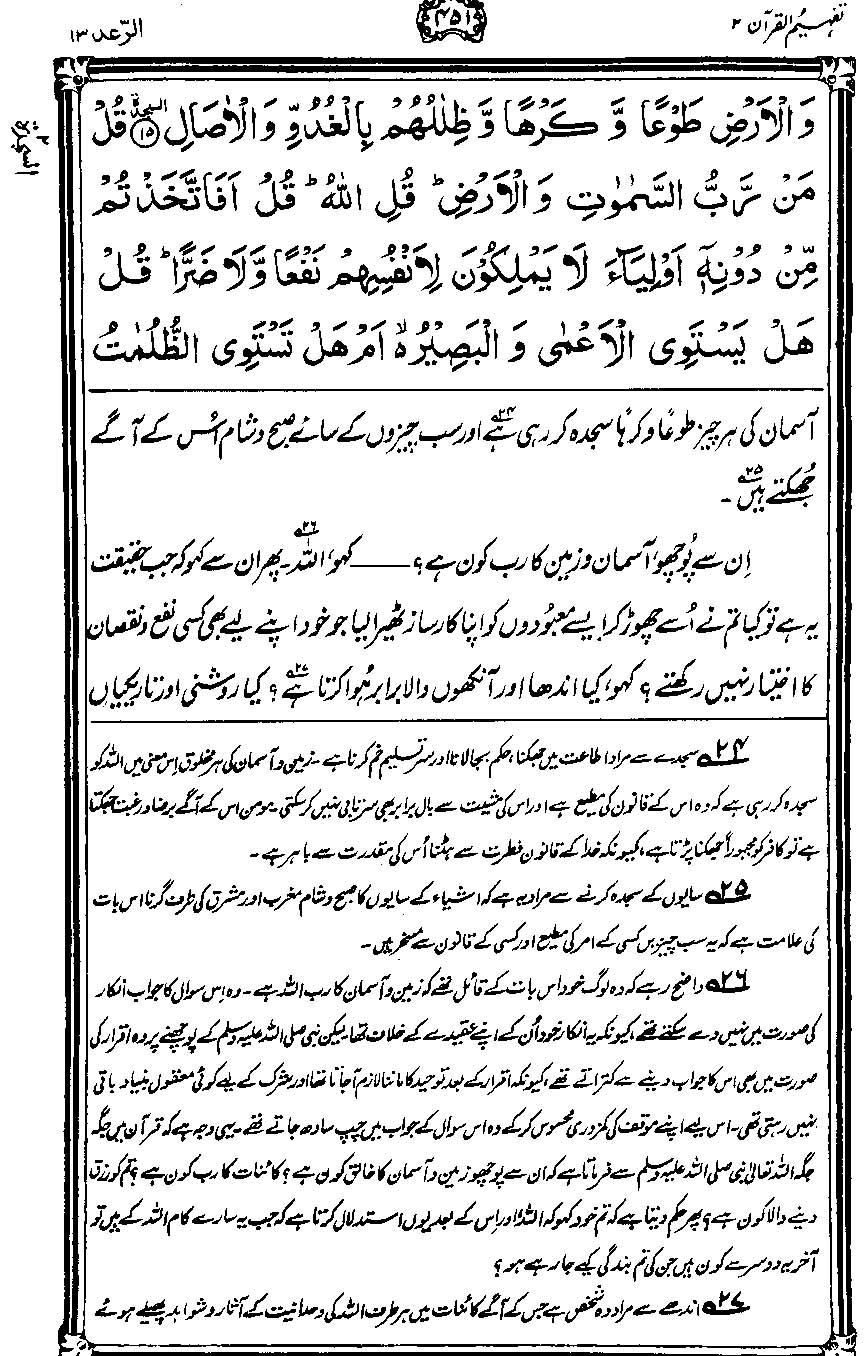 تفہیم القرآن ۲
۴۵۱
الرّعد ۱۳
وَالْاَرْضِ طَوْعًا وَّ كَرْهًا وَّ ظِلٰلُهُمْ بِالْغُدُوِّ وَالْاٰصَالِ السجدة ۱۵ قُلْ
مَنْ رَّبُّ السَّمٰوٰتِ وَالْاَرْضِ ؕ قُلِ اللّٰهُ ؕ قُلْ اَفَاتَّخَذْتُمْ
مِّنْ دُوْنِهٖۤ اَوْلِيَآءَ لَا يَمْلِكُوْنَ لِاَنْفُسِهِمْ نَفْعًا وَّلَا ضَرًّا ؕ قُلْ
هَلْ يَسْتَوِى الْاَعْمٰى وَ الْبَصِيْرُ ۙ اَمْ هَلْ تَسْتَوِى الظُّلُمٰتُ
آسمان کی ہر چیز طوعًا و کرہًا سجدہ کر رہی ہے۲۴ اور سب چیزوں کے سائے صبح و شام اُس کے آگے
جُھکتے ہیں۲۵۔
اِن سے پُوچھو، آسمان و زمین کا رب کون ہے؟ —— کہو، اللہ۲۶۔ پھر ان سے کہو کہ جب حقیقت
یہ ہے تو کیا تم نے اُسے چھوڑ کر ایسے معبُودوں کو اپنا کارساز ٹھیرا لیا جو خود اپنے لیے بھی کسی نفع و نقصان
کا اختیار نہیں رکھتے؟ کہو، کیا اندھا اور آنکھوں والا برابر ہُوا کرتا ہے۲۷؟ کیا روشنی اور تاریکیاں
۲۴ سجدے سے مراد اطاعت میں جھکنا، حکم بجا لانا اور سرِ تسلیم خم کرنا ہے۔ زمین و آسمان کی ہر مخلوق اِس معنی میں اللہ کو
سجدہ کر رہی ہے کہ وہ اس کے قانون کی مطیع ہے اور اس کی مشیت سے بال برابر بھی سرتابی نہیں کر سکتی۔ مومن اس کے آگے برضا و رغبت جھکتا
ہے تو کافر کو مجبوراً جھکنا پڑتا ہے، کیونکہ خدا کے قانونِ فطرت سے ہٹنا اُس کی مقدرت سے باہر ہے۔
۲۵ سایوں کے سجدہ کرنے سے مراد یہ ہے کہ اشیاء کے سایوں کا صبح و شام مغرب اور مشرق کی طرف گرنا اس بات
کی علامت ہے کہ یہ سب چیزیں کسی کے امر کی مطیع اور کسی کے قانون سے مسخر ہیں۔
۲۶ واضح رہے کہ وہ لوگ خود اس بات کے قائل تھے کہ زمین و آسمان کا رب اللہ ہے۔ وہ اِس سوال کا جواب انکار
کی صورت میں نہیں دے سکتے تھے، کیونکہ یہ انکار خود اُن کے اپنے عقیدے کے خلاف تھا۔ لیکن نبی صلی اللہ علیہ وسلم کے پوچھنے پر وہ اقرار کی
صورت میں بھی اس کا جواب دینے سے کتراتے تھے، کیونکہ اقرار کے بعد توحید کا ماننا لازم آجاتا تھا اور شرک کے لیے کوئی معقول بنیاد باقی
نہیں رہتی تھی۔ اس لیے اپنے موقف کی کمزوری محسوس کر کے وہ اس سوال کے جواب میں چپ سادھ جاتے تھے۔ یہی وجہ ہے کہ قرآن میں جگہ
جگہ اللہ تعالیٰ نبی صلی اللہ علیہ وسلم سے فرماتا ہے کہ ان سے پوچھو زمین و آسمان کا خالق کون ہے؟ کائنات کا رب کون ہے؟ تم کو رزق
دینے والا کون ہے؟ پھر حکم دیتا ہے کہ تم خود کہو کہ اللہ، اور اِس کے بعد یوں استدلال کرتا ہے کہ جب یہ سارے کام اللہ کے ہیں تو
آخر یہ دوسرے کون ہیں جن کی تم بندگی کیے جا رہے ہو؟
۲۷ اندھے سے مراد وہ شخص ہے جس کے آگے کائنات میں ہر طرف اللہ کی وحدانیت کے آثار و شواہد پھیلے ہوئے